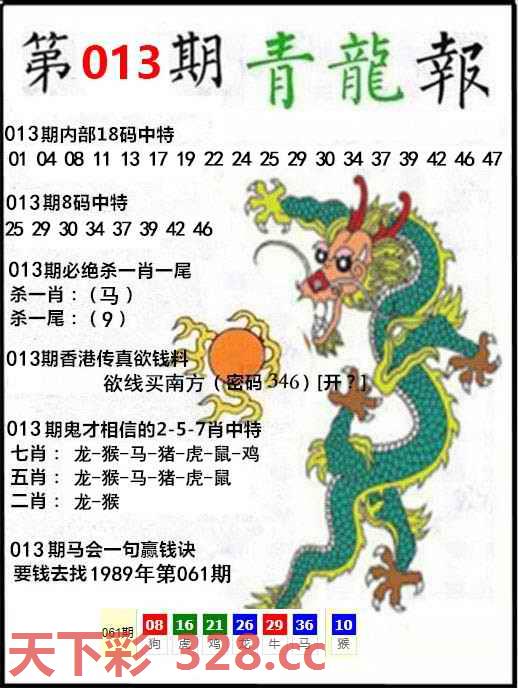 第013期青龍報
013期内部18码中特
01 04 08 11 13 17 19 22 24 25 29 30 34 37 39 42 46 47
013期8码中特
25 29 30 34 37 39 42 46
013期必绝杀一肖一尾
杀一肖：（马）
杀一尾：（9）
013期香港传真欲钱料
欲线买南方（密码346）[开？]
013期鬼才相信的2-5-7肖中特
七肖： 龙-猴-马-猪-虎-鼠-鸡
五肖： 龙-猴-马-猪-虎-鼠
二肖： 龙-猴
013期马会一句赢钱诀
要钱去找1989年第061期
061期 08 16 21 26 29 36 10
狗 虎 鸡 龙 牛 马 猴
天下彩 328.cc